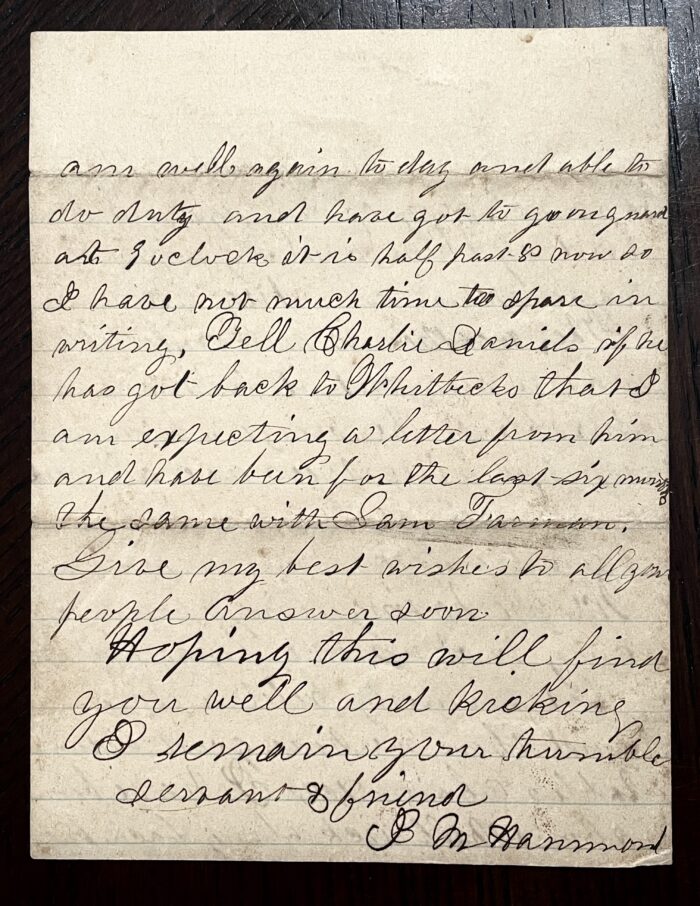 am well again to day and able to
do duty and have got to go on guard
at 9 oclock it is half past 8 now so
I have not much time to spare in
writing, Tell Charlie Daniels if he
has got back to Whitbecks that I
am expecting a letter from him
and have been for the last six months
the same with Sam Tarman.
Give my best wishes to all your
people answer soon
Hoping this will find
you well and kicking
I remain your humble
servant & friend
J M Hammond